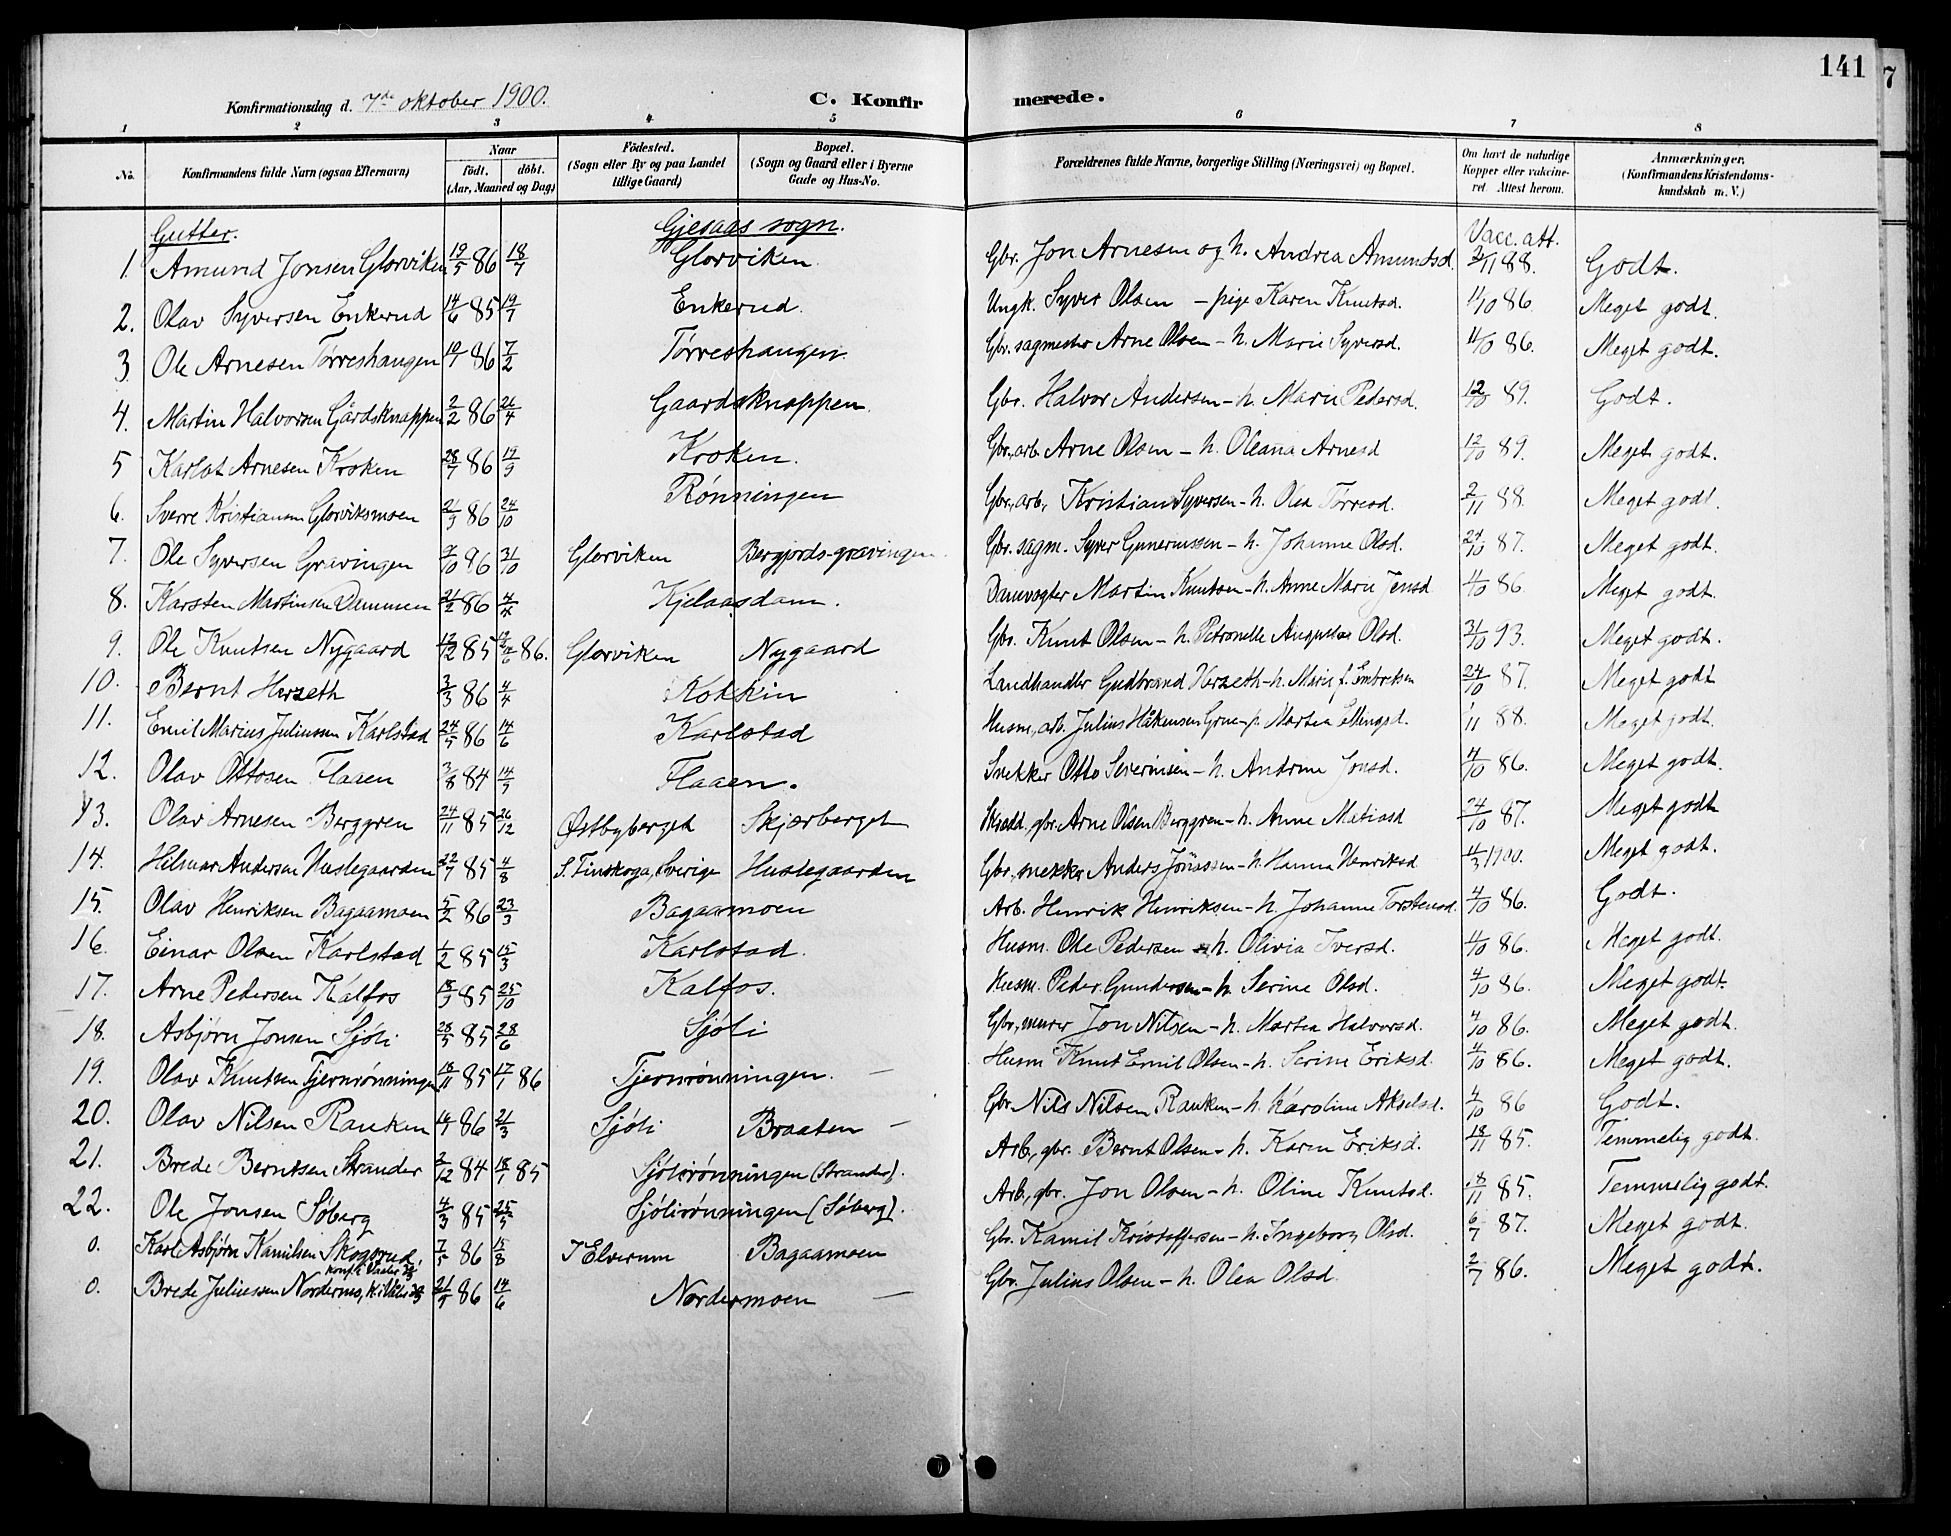 141
7
Konfirmationsdag d. 7de oktober 1900.
C. Konfirmerede.
1 2 3 4 5 6 7 8
No. Konfirmandens fulde Navn (ogsaa Efternavn) Naar födt. döbt. (Aar, Maaned og Dag) Födested. (Sogn eller By og paa Landet tillige Gaard) Bopæl. (Sogn og Gaard eller i Byerne Gade og Hus-No. Forældrenes fulde Navne, borgerlige Stilling (Næringsvei) og Bopæl. Om havt de naturlige Kopper eller vakcineret Attest herom. Anmærkninger. (Konfirmandens Kristendomskundskab m. V.)
Gutter. Gjesaas sogn. Vacc. att.
1. Amund Jonsen Glorviken 19/5 86 18/7 Glorviken. Gbr. Jon Arnesen og h. Andrea Amundsd. 2/11 88. Godt.
2. Olav Syversen Enkerud 14/6 85 19/7 Enkerud. Ungk. Syver Olsen – pige Karen Knutsd. 4/10 86. Meget godt.
3. Ole Arnesen Tørreshaugen 10/1 86 7/2 Tørreshaugen. Gbr. sagmester Arne Olsen – h. Marie Syversd. 4/10 86. Meget godt.
4. Martin Halvorsen Gårdsknappen 2/2 86 26/4 Gaardsknappen. Gbr. Halvor Andersen – h. Mari Pedersd. 12/10 89. Godt.
5 Karlot Arnesen Kroken 28/7 86 19/9 Kroken. Gbr., arb. Arne Olsen – h. Oleana Arnesd 12/10 89. Meget godt.
6. Sverre Kristiansen Glorviksmoen 21/9 86 24/10 Rønningen Gbr., arb. Kristian Syversen – h. Olea Torresd. 2/11 88. Meget godt.
7. Ole Syversen Gravingen 9/10 86 31/10 Glorviken Bergjords-gravingen. Gbr. sagm. Syver Gunerussen – h. Johanne Olsd. 24/10 87. Meget godt.
8. Karsten Martinsen Dammen 21/2 86 4/4 Kjelaasdam. Damvogter Martin Knutsen – h. Anne Marie Jensd 4/10 86. Meget godt.
9. Ole Knutsen Nygaard 12/12 85 86. Glorviken Nygaard Gbr. Knut Olsen – h. Petronelle Augusta Olsd. 31/10 93. Meget godt.
10. Bernt Herseth 3/3 86 4/4 Kokkin Landhandler Gudbrand Herseth – h. Marie f. Embretsen 24/10 87. Meget godt
11. Emil Marius Juliussen Karlstad 24/5 86 14/6 Karlstad Husm., arb. Julius Håkensen Grue – p. Martea Ellingsd. /11 88. Meget godt.
12. Olav Ottosen Flaaen 3/8 84 14/9 Flaaen. Snekker Otto Severinsen – h. Andrine Jonsd. 4/10 86. Meget godt.
13. Olav Arnesen Berggren 24/11 85 26/12 Østbyberget Skjærberget Skredd. gbr. Arne Olsen Berggren – h. Anne Matiasd 24/10 87. Meget godt
14. Hilmar Andersen Huslegaarden 22/7 85 4/8 S. Finskoga, Sverige Huslegaarden Gbr., snekker Anders Jönsson – h. Hanna Henriksd 11/3 1900. Meget godt.
15. Olav Henriksen Bagaamoen 5/2 86 23/3 Bagaamoen Arb. Henrik Henriksen – h. Johanne Torstensd. 4/10 86. Godt.
16. Einar Olsen Karlstad 1/2 85 15/3 Karlstad. Husm. Ole Pedersen – h. Olivia Iversd. 4/10 86. Meget godt.
17. Arne Pedersen Kalfos 18/9 85 25/10 Kalfos. Husm. Peder Gundersen – h. Serine Olsd. 4/10 86. Meget godt.
18. Asbjørn Jonsen Sjøli 28/5 85 28/6 Sjøli Gbr., murer Jon Nilsen – h. Martea Halvorsd. 4/10 86. Meget godt.
19. Olav Knutsen Tjernrønningen 18/11 85 17/1 86 Tjernrønningen. – Husm Knut Emil Olsen – h. Serine Eriksd. 4/10 86. Meget godt.
20. Olav Nilsen Rauken 86 21/3 Sjøli Braaten – Gbr Nils Nilsen Rauken – h. Karoline Akselsd. 4/10 86 Godt.
21. Brede Berntsen Strander 2/12 84 18/1 85 Sjølirønningen (Strander). Arb., gbr. Bernt Olsen – h. Karen Eriksd. 18/11 85. Temmelig godt.
22. Ole Jonsen Søberg 4/3 85 25/5 Sjølirønningen (Søberg). Arb., gbr. Jon Olsen – h. Oline Knutsd. 18/11 85. Temmelig godt.
0. Karl Asbjørn Kamilsen Skogsrud, 7/5 86 15/8 I Elverum Bagaamoen Gbr. Kamil Kristoffersen – h. Ingeborg Olsd. 6/7 87. Meget godt.
konf. i Vaaler
0. Brede Juliussen Nordermo, 21/5 86 14/6 Nordermoen – Gbr. Julius Olsen – h. Olea Olsd. 2/7 86. Meget godt.